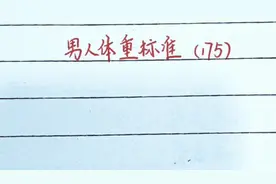 男人体重标准（175）